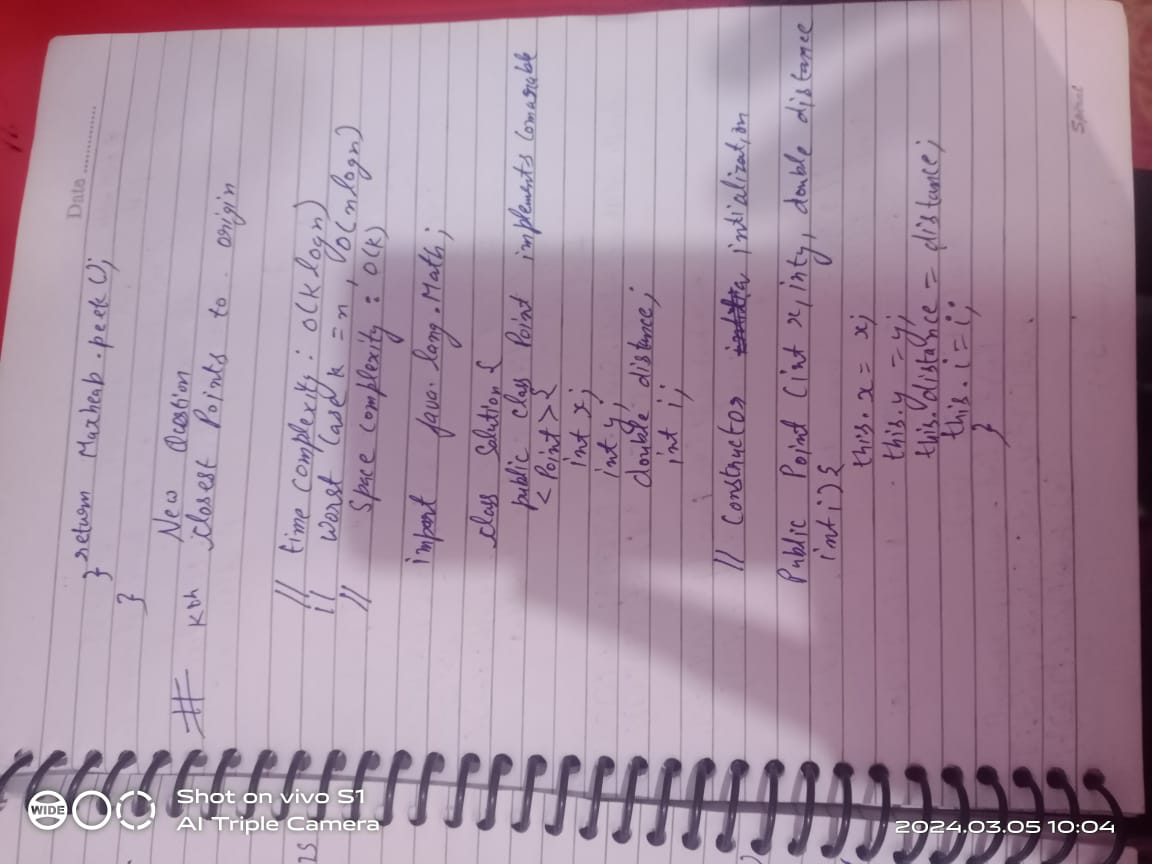 Data ............
} return Maxheab.peek();
}
# New Question
Kth closest Points to origin
// time complexity: O(k log n)
// worst case k = n, O(n log n)
// Space complexity: O(k)
import java.long.Math;
class Solution {
public class Point implements Comarable
<Point> {
int x;
int y;
double distance;
int i;
// Constructor intialization
Public Point (int x, int y, double distance
int i) {
this.x = x;
this.y = y;
this.distance = distance;
this.i = i;
}
Spiral
25
WIDE
Shot on vivo S1
AI Triple Camera
2024.03.05 10:04